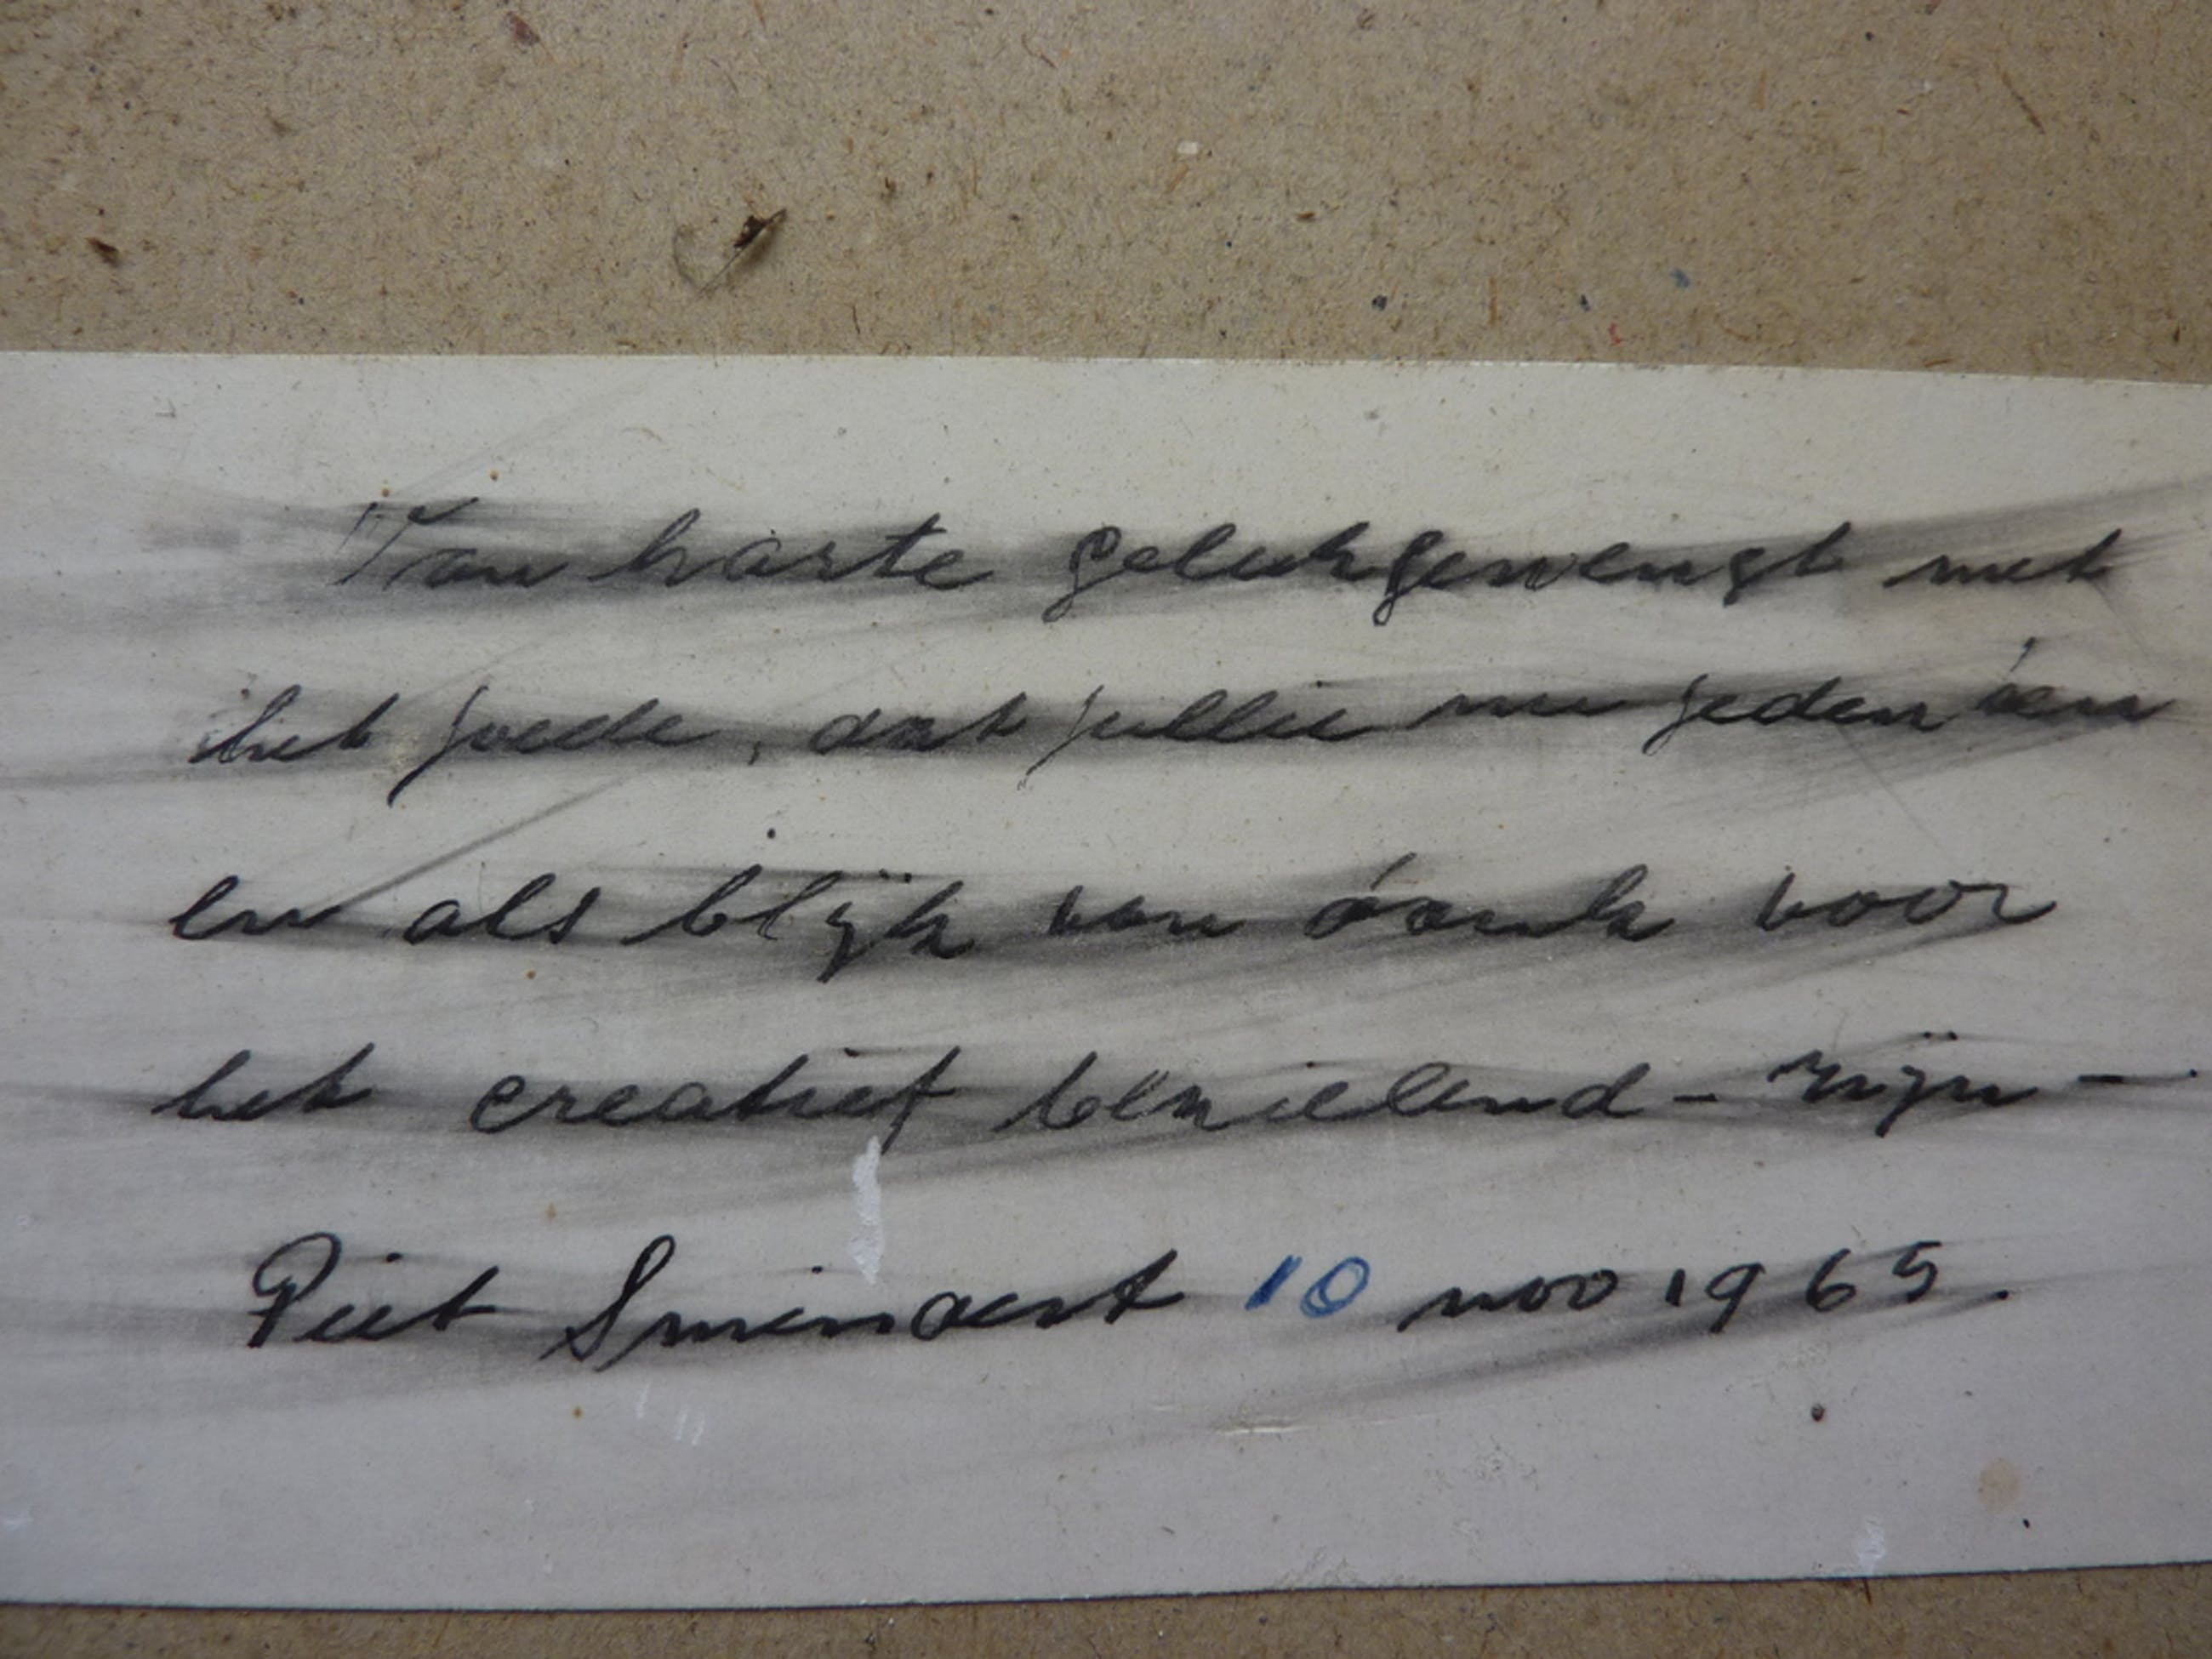 Van harte gelukgewenst met
het goede, dat jullie nu jeden
en als blijk van dank voor
het creatief bezielend - zijn -
Piet 10 nov 1965.